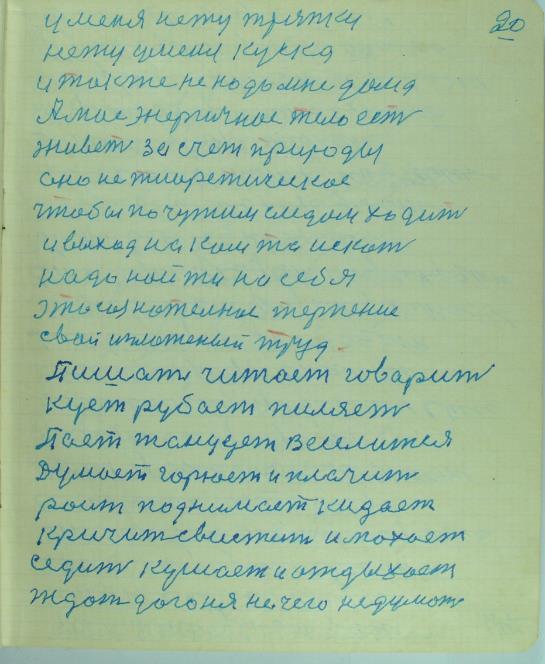 20
у меня нету тряпки
нету у меня куска
и так же не надо мне дома
А мое энергичное тело ест
живет за счет природы
оно не тиоретическое
чтобы по чужим следом ходит
и выход на ком та искат
надо найти на себя
это сознателное терпение
свой изложеный труд
Пишат читает говарит
кует рубает пиляет
Пает танцует веселится
Думает горюет и плачит
роит поднимает кидает
кричит свистит и махает
седит кушает и отдыхает
ждат догоня нечего недумат